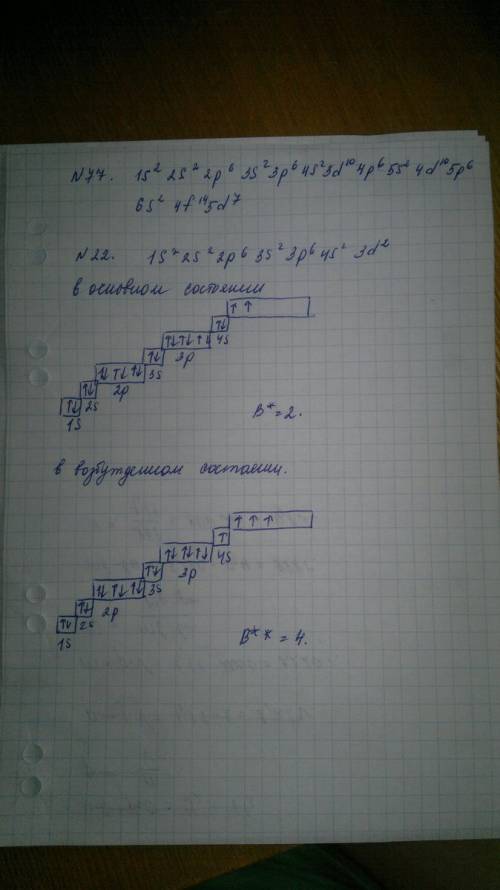 N77. 1s² 2s² 2p⁶ 3s² 3p⁶ 4s² 3d¹⁰ 4p⁶ 5s² 4d¹⁰ 5p⁶
6s² 4f¹⁴ 5d⁷
N22. 1s² 2s² 2p⁶ 3s² 3p⁶ 4s² 3d²
в основном состоянии
↑ ↑
↑↓ 4s
↑↓ ↑↓ ↑↓ 3p
↑↓ 3s
↑↓ ↑↓ ↑↓ 2p
↑↓ 2s
↑↓ 1s
B* = 2.
в возбужденном состоянии.
↑ ↑ ↑
↑ 4s
↑↓ ↑↓ ↑↓ 3p
↑↓ 3s
↑↓ ↑↓ ↑↓ 2p
↑↓ 2s
↑↓ 1s
B** = 4.